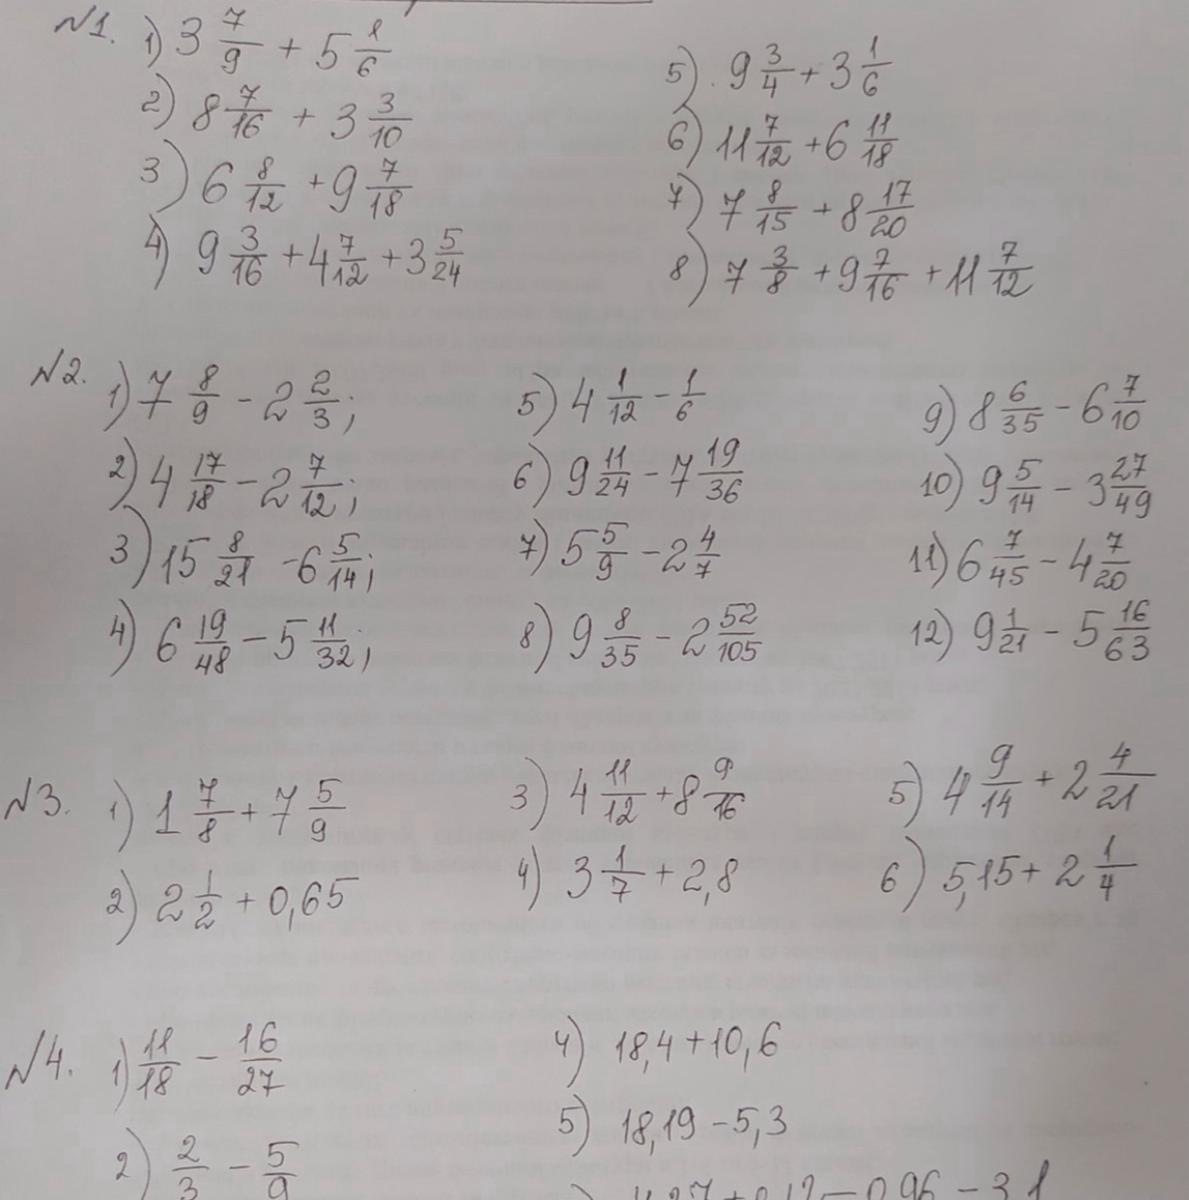 №1. 1) 3 7/9 + 5 1/6
2) 8 7/16 + 3 3/10
3) 6 8/12 + 9 7/18
4) 9 3/16 + 4 7/12 + 3 5/24
5) 9 3/4 + 3 1/6
6) 11 7/12 + 6 11/18
7) 7 8/15 + 8 17/20
8) 7 3/8 + 9 7/16 + 11 7/12
№2. 1) 7 8/9 - 2 2/3;
2) 4 17/18 - 2 7/12;
3) 15 8/21 - 6 5/14;
4) 6 19/48 - 5 11/32;
5) 4 1/12 - 1/6
6) 9 11/24 - 7 19/36
7) 5 5/9 - 2 4/7
8) 9 8/35 - 2 52/105
9) 8 6/35 - 6 7/10
10) 9 5/14 - 3 27/49
11) 6 7/45 - 4 7/20
12) 9 1/21 - 5 16/63
№3. 1) 1 7/8 + 7 5/9
2) 2 1/2 + 0,65
3) 4 11/12 + 8 9/16
4) 3 1/7 + 2,8
5) 4 9/14 + 2 4/21
6) 5,15 + 2 1/4
№4. 1) 11/18 - 16/27
2) 2/3 - 5/9
4) 18,4 + 10,6
5) 18,19 - 5,3